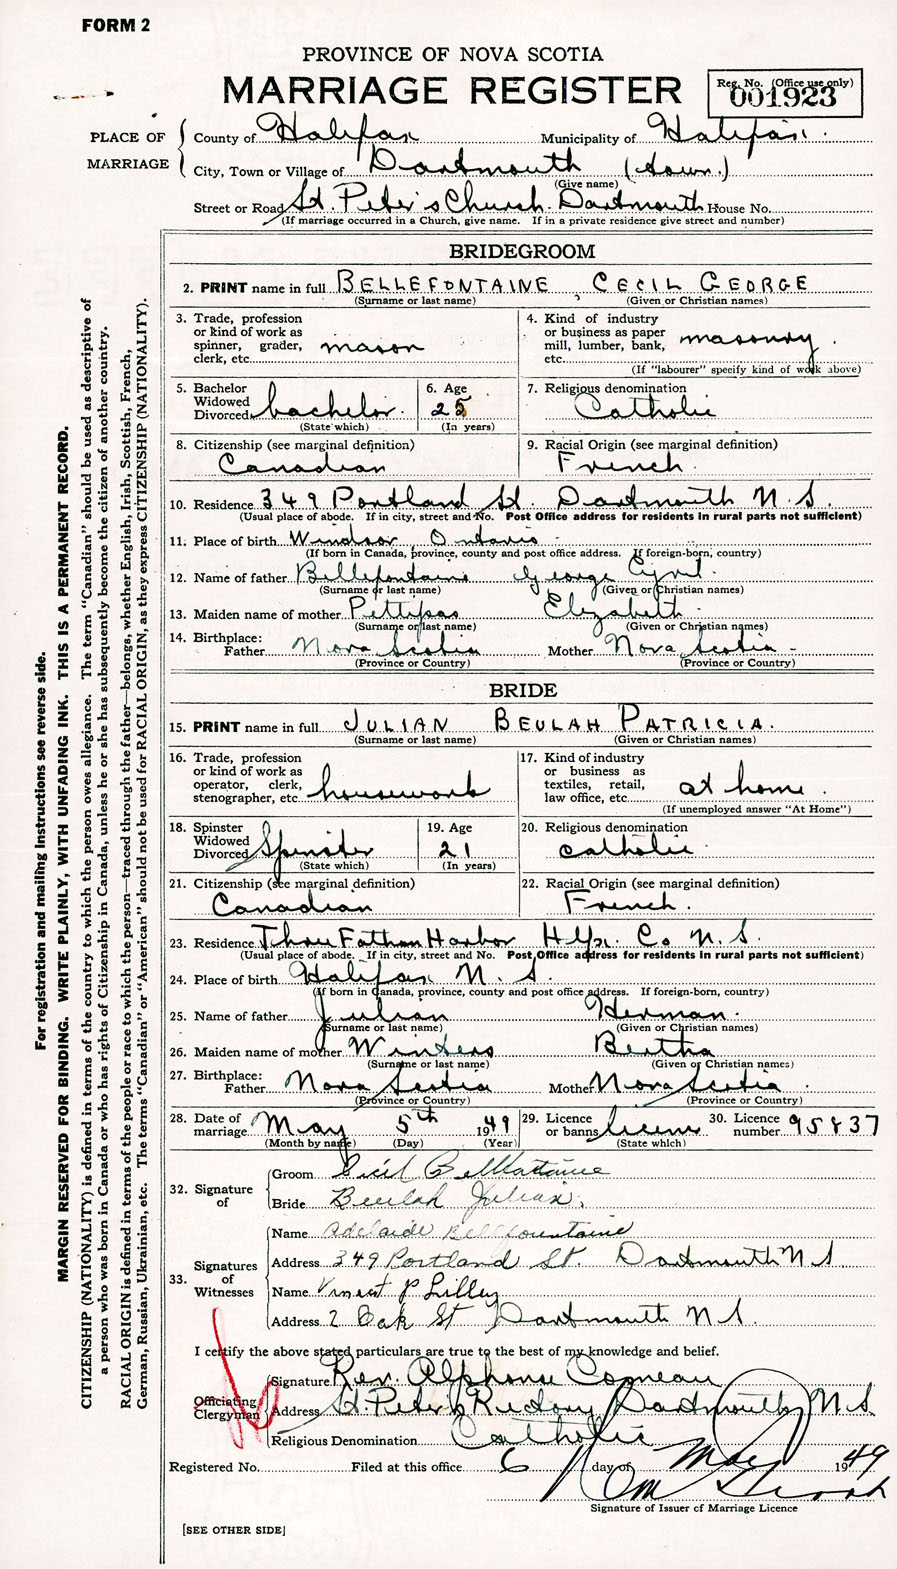 FORM 2
PROVINCE OF NOVA SCOTIA
MARRIAGE REGISTER
Reg. No. (Office use only)
001923
PLACE OF MARRIAGE
County of Halifax Municipality of Halifax.
City, Town or Village of Dartmouth (town.)
(Give name)
Street or Road St. Peter's Church. Dartmouth House No.
(If marriage occurred in a Church, give name. If in a private residence give street and number)
BRIDEGROOM
2. PRINT name in full BELLEFONTAINE, CECIL GEORGE
(Surname or last name) (Given or Christian names)
3. Trade, profession or kind of work as spinner, grader, clerk, etc. mason
4. Kind of industry or business as paper mill, lumber, bank, etc. masonry.
(If "labourer" specify kind of work above)
5. Bachelor Widowed Divorced bachelor.
(State which)
6. Age 25
(In years)
7. Religious denomination Catholic
8. Citizenship (see marginal definition) Canadian
9. Racial Origin (see marginal definition) French.
10. Residence 349 Portland St. Dartmouth N.S.
(Usual place of abode. If in city, street and No. Post Office address for residents in rural parts not sufficient)
11. Place of birth Windsor, Ontario
(If born in Canada, province, county and post office address. If foreign-born, country)
12. Name of father Bellefontaine George Cyril.
(Surname or last name) (Given or Christian names)
13. Maiden name of mother Pettipas Elizabeth
(Surname or last name) (Given or Christian names)
14. Birthplace: Father Nova Scotia Mother Nova Scotia.
(Province or Country) (Province or Country)
BRIDE
15. PRINT name in full JULIAN BEULAH PATRICIA.
(Surname or last name) (Given or Christian names)
16. Trade, profession or kind of work as operator, clerk, stenographer, etc. housework
17. Kind of industry or business as textiles, retail, law office, etc. at home.
(If unemployed answer "At Home")
18. Spinster Widowed Divorced Spinster
(State which)
19. Age 21
(In years)
20. Religious denomination catholic.
21. Citizenship (see marginal definition) Canadian
22. Racial Origin (see marginal definition) French.
23. Residence Three Fathom Harbor Hfx. Co N.S.
(Usual place of abode. If in city, street and No. Post Office address for residents in rural parts not sufficient)
24. Place of birth Halifax N.S.
(If born in Canada, province, county and post office address. If foreign-born, country)
25. Name of father Julian Herman.
(Surname or last name) (Given or Christian names)
26. Maiden name of mother Winters Bertha
(Surname or last name) (Given or Christian names)
27. Birthplace: Father Nova Scotia Mother Nova Scotia.
(Province or Country) (Province or Country)
28. Date of marriage May 5th 1949
(Month by name) (Day) (Year)
29. Licence or banns license
(State which)
30. Licence number 95837
32. Signature of
Groom Cecil Bellfontaine
Bride Beulah Julian.
33. Signatures of Witnesses
Name Adelaide Bellfountaine
Address 349 Portland St. Dartmouth N S
Name Vincent P Lilley
Address 2 Oak St Dartmouth N S.
I certify the above stated particulars are true to the best of my knowledge and belief.
Officiating Clergyman
Signature Rev. Alphonse Comeau
Address St Peter's Rectory Dartmouth, N S.
Religious Denomination Catholic
Registered No. Filed at this office 6 day of May 1949
Signature of Issuer of Marriage Licence
[SEE OTHER SIDE]
For registration and mailing instructions see reverse side.
MARGIN RESERVED FOR BINDING. WRITE PLAINLY, WITH UNFADING INK. THIS IS A PERMANENT RECORD.
CITIZENSHIP (NATIONALITY) is defined in terms of the country to which the person owes allegiance. The term "Canadian" should be used as descriptive of
a person who was born in Canada or who has rights of Citizenship in Canada, unless he or she has subsequently become the citizen of another country.
RACIAL ORIGIN is defined in terms of the people or race to which the person—traced through the father—belongs, whether English, Irish, Scottish, French,
German, Russian, Ukrainian, etc. The terms "Canadian" or "American" should not be used for RACIAL ORIGIN, as they express CITIZENSHIP (NATIONALITY).